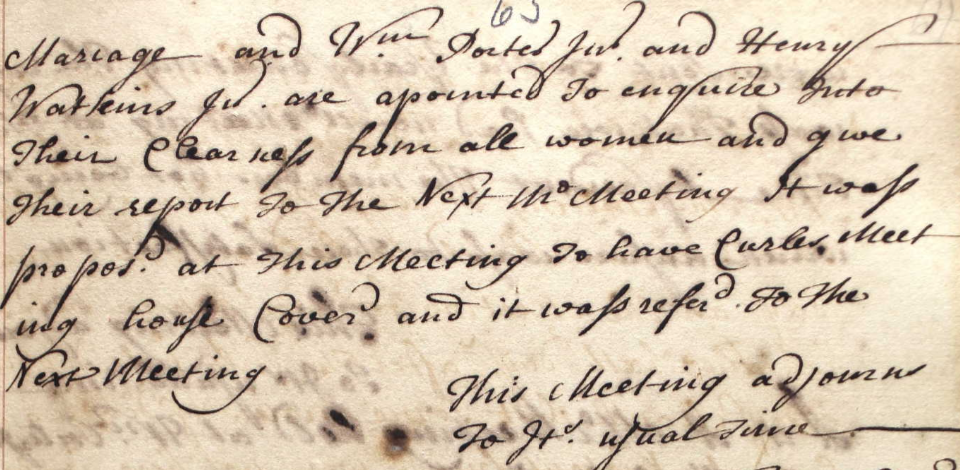 63
Mariage and Wm. Porter Junr. and Henry
Watkins Jur. are apointed To enquire Into
Their Clearness from all women and give
Their report To The Next Mo Meeting It wass
propos.d at This Meeting To have Curles Meet
ing house Coverd and it wass referd. To The
Next Meeting
This Meeting adjourns
To Its. usual Time